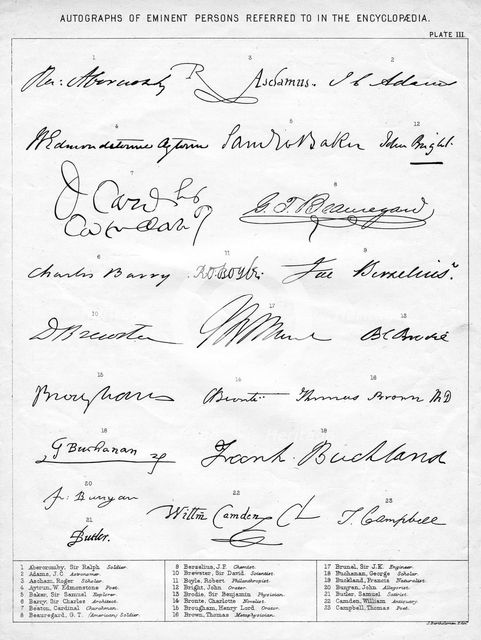 AUTOGRAPHS OF EMINENT PERSONS REFERRED TO IN THE ENCYCLOPÆDIA.
PLATE III.
1 3 2
Ra: Abercromby R Aschamus. J C Adams
4 5 12
W Edmondstoune Aytoun Saml W Baker John Bright.
7 8
J Card
G. T. Beauregard
6 11 9
Charles Barry Ro: Boyle. Jac Berzelius
10 17 13
D Brewster B C Brodie
15 14 16
Brougham Bronte Thomas Brown MD
18 19
G Buchanan Frank Buckland
20 22 23
Jo: Bunyan Willm Camden Cl T. Campbell
21
Butler.
1 Abercromby, Sir Ralph Soldier
2 Adams, J.C Astronomer
3 Ascham, Roger Scholar
4 Aytoun, W. Edmonstone Poet
5 Baker, Sir Samuel Explorer
6 Barry, Sir Charles Architect
7 Beaton, Cardinal Churchman
8 Beauregard, G. T. (American) Soldier
9 Berzelius, J.P. Chemist
10 Brewster, Sir David Scientist
11 Boyle, Robert Philanthropist
12 Bright, John Orator
13 Brodie, Sir Benjamin Physician
14 Bronte, Charlotte Novelist
15 Brougham, Henry Lord Orator
16 Brown, Thomas Metaphysician
17 Brunel, Sir J.K. Engineer
18 Buchanan, George Scholar
19 Buckland, Francis Naturalist
20 Bunyan, John Allegorist
21 Butler, Samuel Satirist
22 Camden, William Antiquary
23 Campbell, Thomas Poet
J. Bartholomew, Edinr